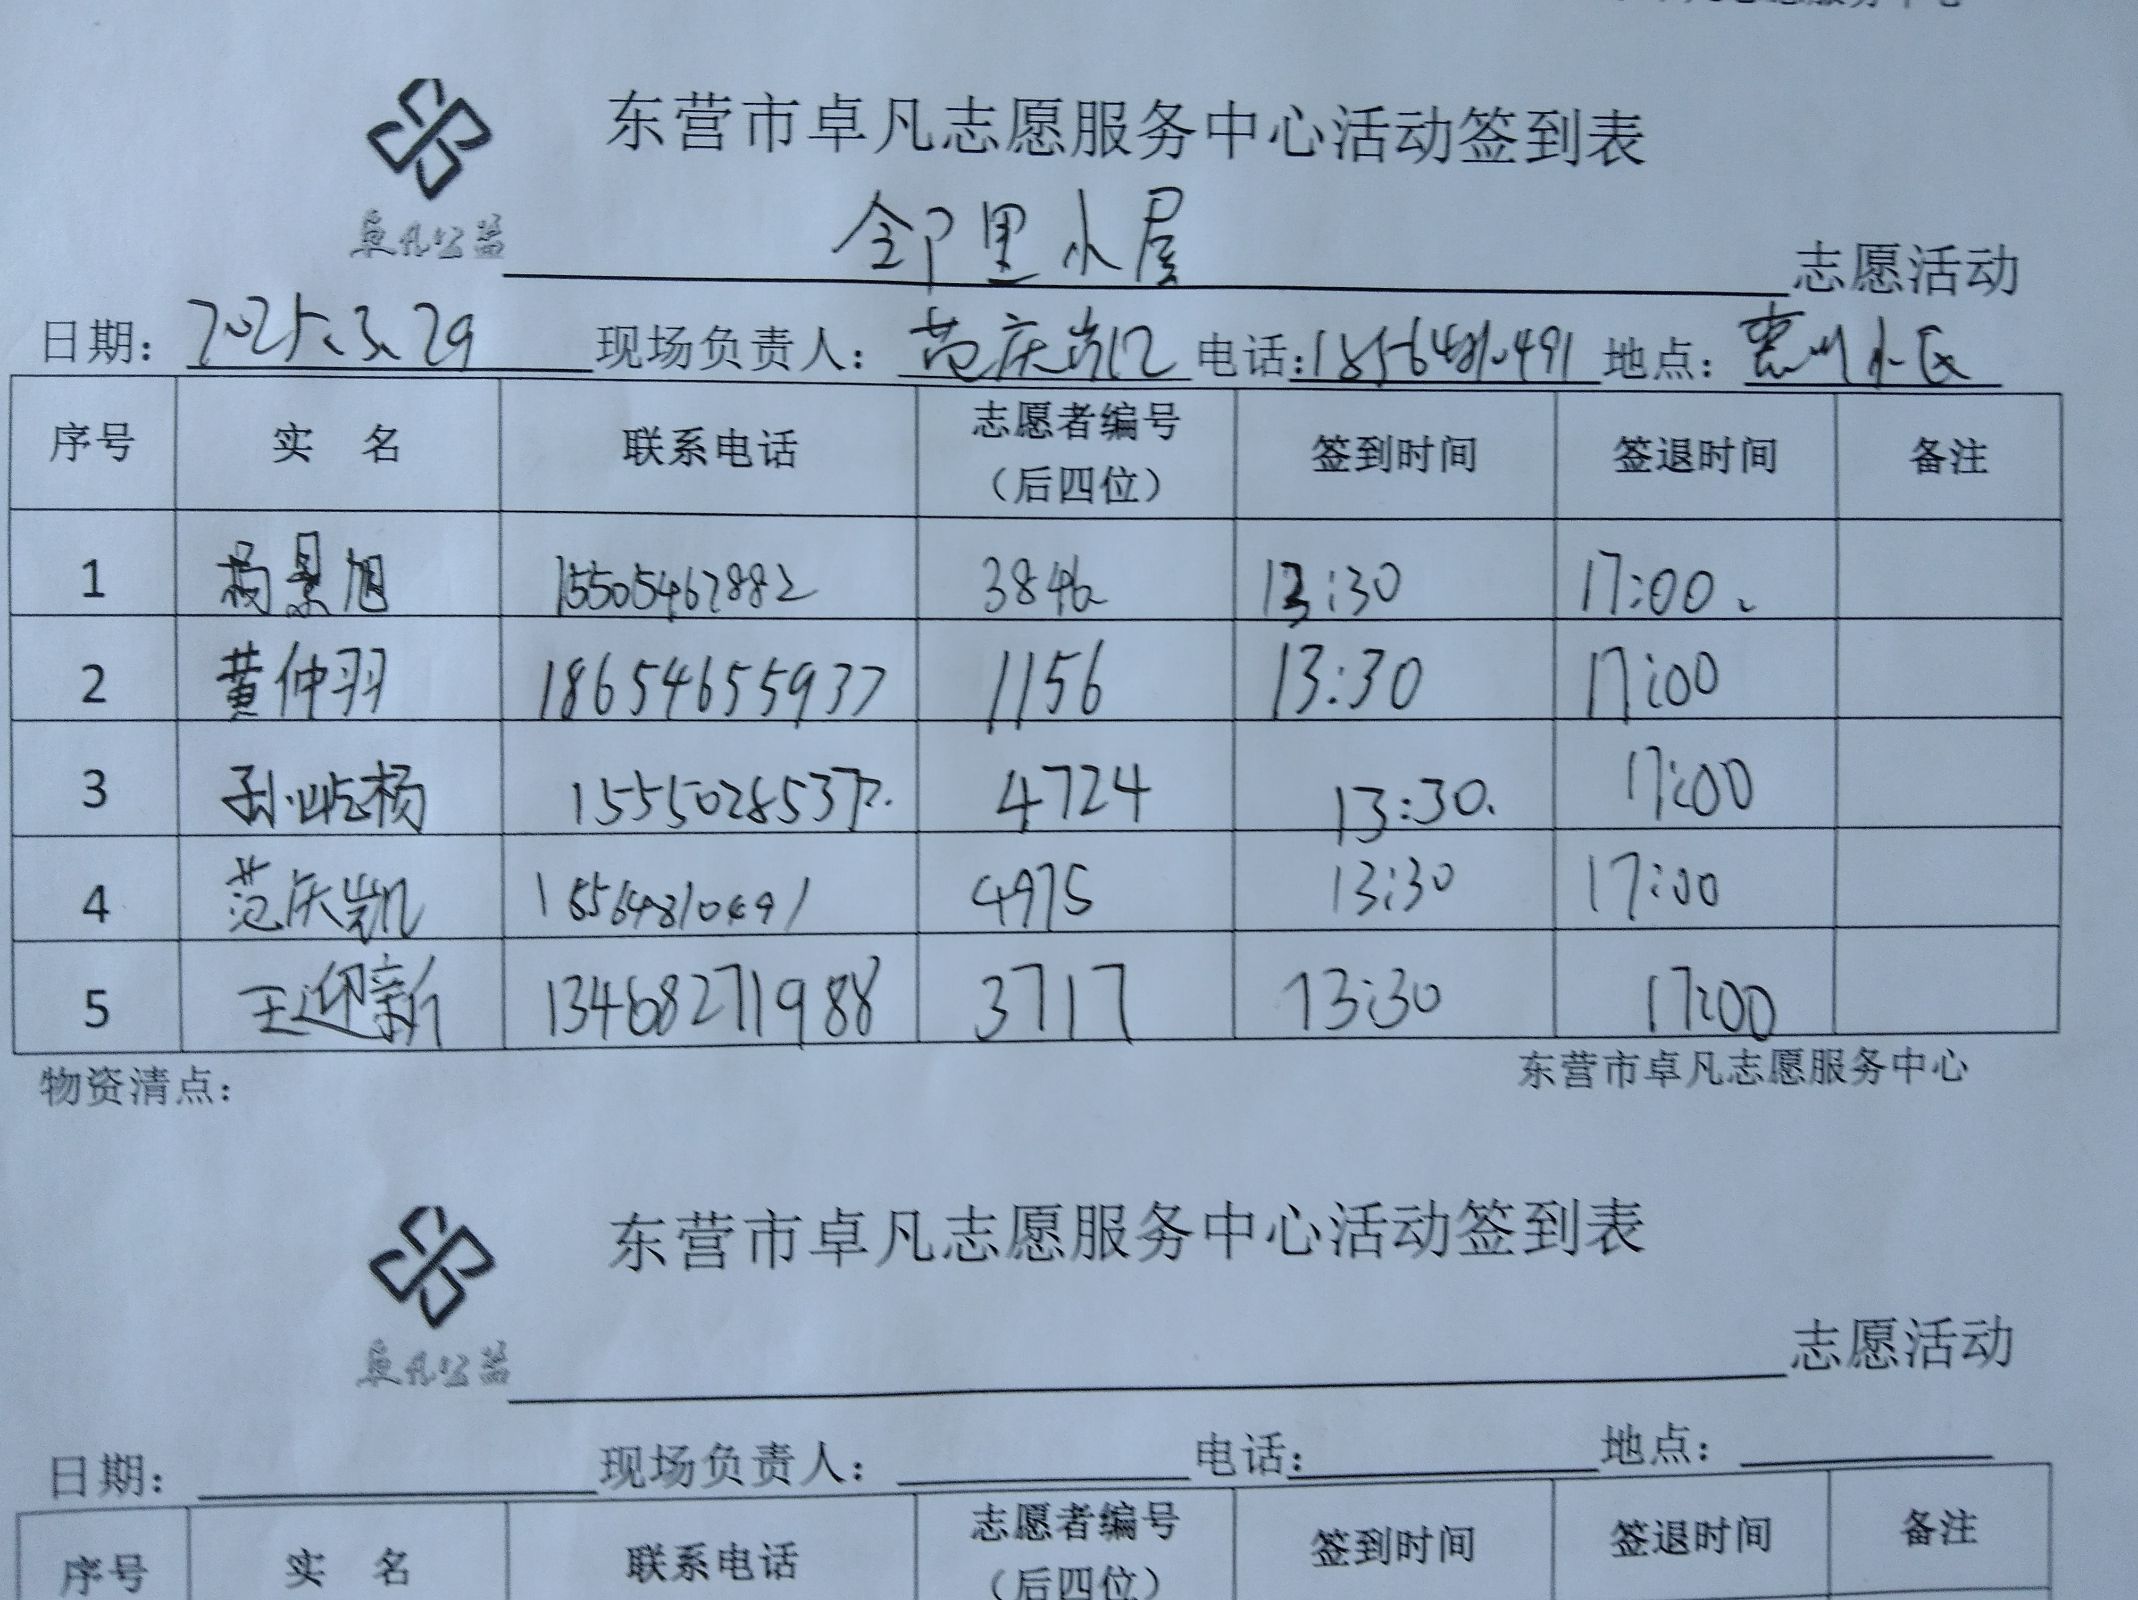 东营市卓凡志愿服务中心活动签到表
卓凡公益 邻里小屋 志愿活动
日期: 2025.3.29 现场负责人: 范庆凯 电话: 地点: 惠州小区
序号 实 名 联系电话 志愿者编号（后四位） 签到时间 签退时间 备注
1 杨景旭 15505467882 3846 13:30 17:00
2 黄仲羽 18654655937 1156 13:30 17:00
3 孙屹杨 4724 13:30. 17:00
4 范庆凯 4975 13:30 17:00
5 王迎新 13468271988 3717 13:30 17:00
物资清点: 东营市卓凡志愿服务中心
东营市卓凡志愿服务中心活动签到表
卓凡公益 志愿活动
日期: 现场负责人: 电话: 地点:
序号 实 名 联系电话 志愿者编号（后四位） 签到时间 签退时间 备注